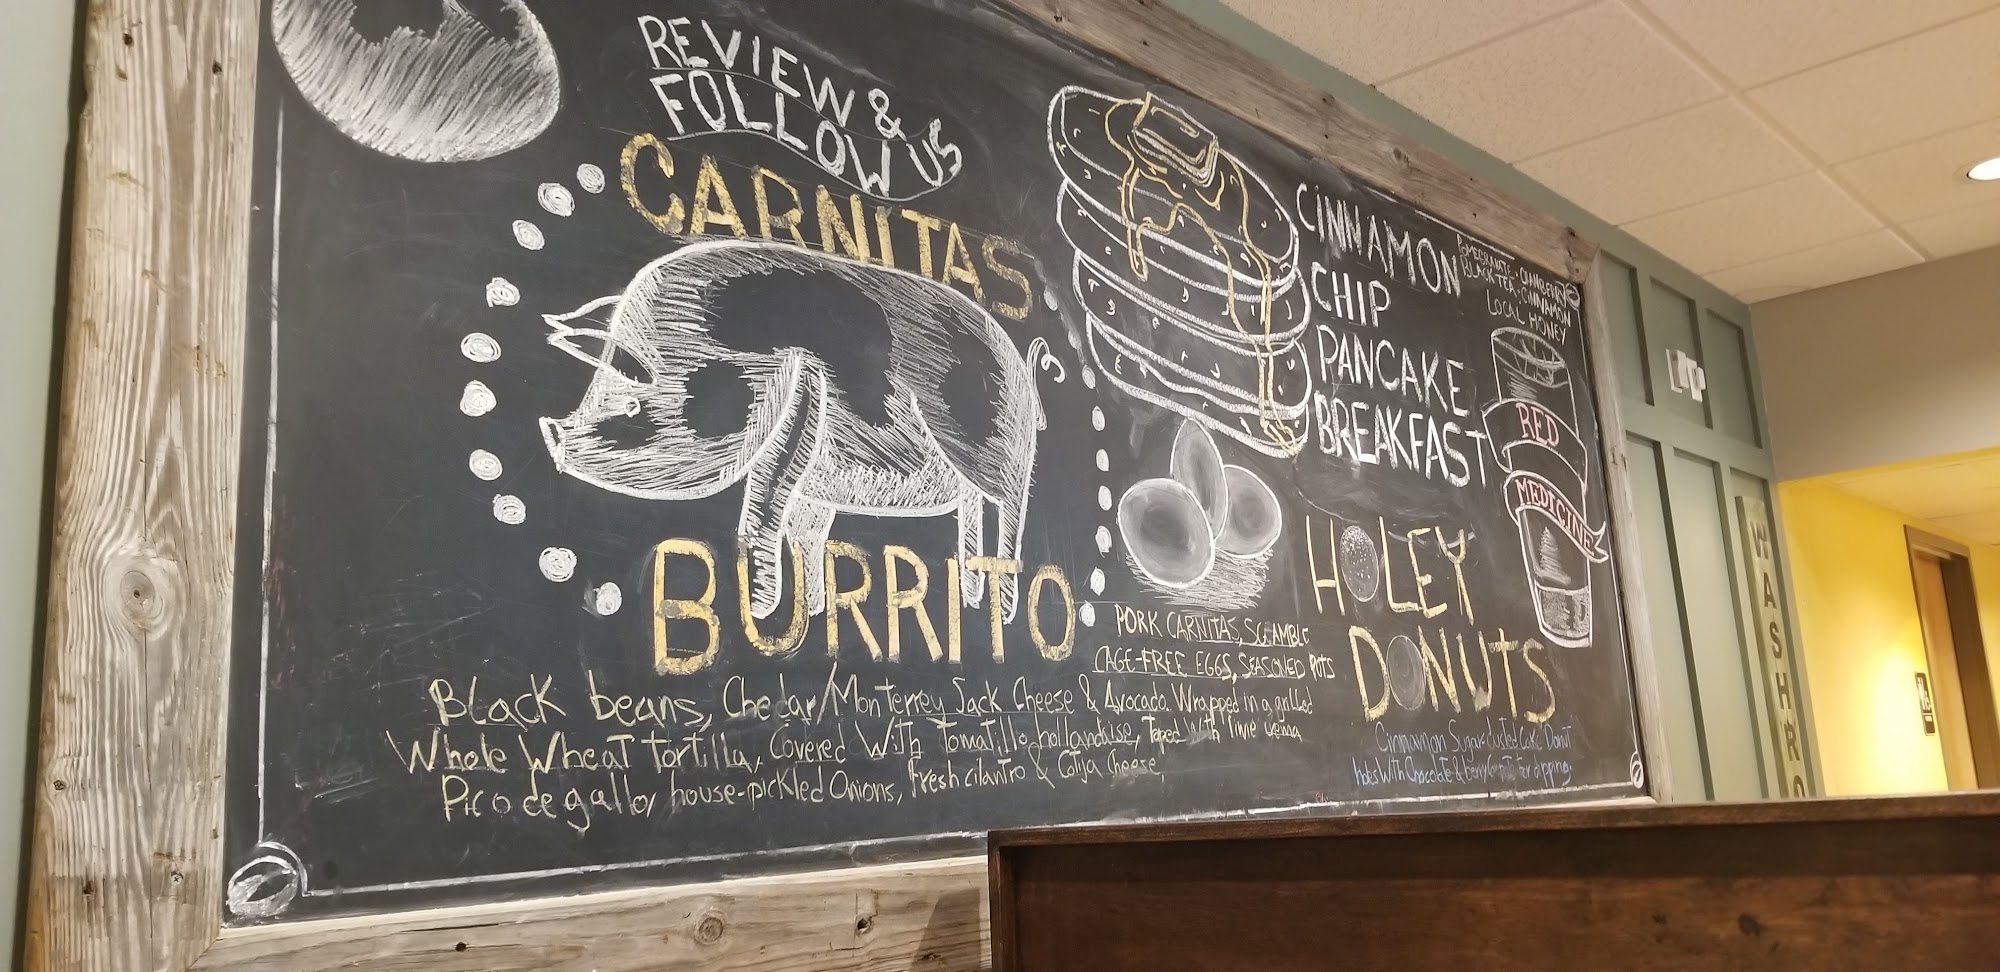 REVIEW &
FOLLOW US
CARNITAS
BURRITO
PORK CARNITAS, SCRAMBLE
CAGE-FREE EGGS, SEASONED POTS
Black beans, Chedar/Monterrey Jack Cheese & Avocado Wrapped in a grilled
Whole Wheat tortilla, Covered With Tomatillo hollandaise, Toped With lime crema
Pico de gallo, house-pickled Onions, fresh cilantro & Cotija Cheese,
CINNAMON
CHIP
PANCAKE
BREAKFAST
HOLEY
DONUTS
Cinnamon Sugar dusted Cake Donut
holes With Chocolate & berry for dipping.
POMEGRANATE · CRANBERRY
BLACK TEA · CINNAMON
LOCAL HONEY
RED
MEDICINE
WASHRO